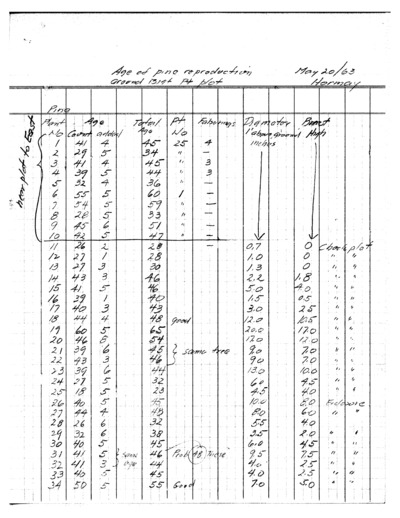 Age of pine reproduction May 20/63
Ground Plot Pt Plot Hormay
Pine
Plant Age Total Pt Diameter Burnt
No Count added Age No 1' above ground High
inches
new plot to East
1 41 4 45 25 4
2 29 5 34 " —
3 41 4 45 " 3
4 39 5 44 " 3
5 32 4 36 " —
6 55 5 60 1 —
7 54 5 59 " —
8 28 5 33 " —
9 45 6 51 " —
10 42 5 47 " —
11 26 2 28 — 0.7 0 Check plot
12 27 1 28 1.0 0 " "
13 27 3 30 1.3 0 " "
14 43 3 46 2.2 1.8 " "
15 41 5 46 5.0 4.0 " "
16 39 1 40 1.5 0.5 " "
17 40 3 43 3.0 2.5 " "
18 44 4 48 good 12.0 10.5 " "
19 60 5 65 20.0 17.0 " "
20 46 8 54 12.0 12.0 " "
21 39 6 45 9.0 7.0 " "
same tree
22 43 3 46 9.0 7.0 " "
23 39 6 44 13.0 10.0 " "
24 27 5 32 6.0 4.5 " "
25 18 5 23 4.5 4.0 " "
26 40 5 45 10.0 8.0 Exclosure
27 44 4 48 8.0 6.0 " "
28 26 6 32 5.5 4.0
29 32 6 38 3.5 2.0 "
30 40 5 45 6.0 4.5 "
31 41 5 same 46 Prob 48 These 9.5 7.5 "
32 41 3 age 44 4.0 2.5 "
33 40 5 45 4.0 2.5 "
34 50 5 55 Good 7.0 5.0 "